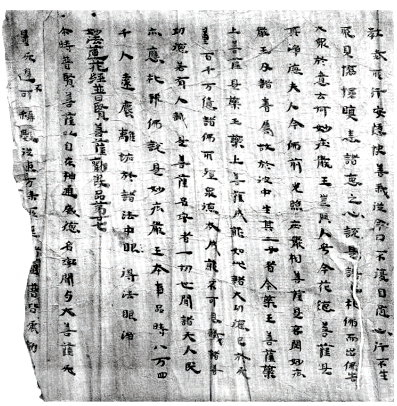 教戒所行安隱快善我從今日不復自隨心行不生
耶見憍慢瞋恚諸惡之心說是語已礼佛而出佛告
大衆於意云何妙莊嚴王豈異人乎今花德菩薩是
其淨德夫人今佛前光照莊嚴相菩薩是哀愍妙莊
嚴王及諸眷屬故於彼中生其二子者今藥王菩薩藥
上菩薩是藥王藥上菩薩成就如此諸大功德已於无
量百千万億諸佛所殖衆德本成就不可思議諸善
功德若有人識是二菩薩名字者一切世間諸天人民
亦應礼拜佛說是妙莊嚴王本事品時八万四
千人遠塵離垢於諸法中得法眼淨
妙法蓮花經普賢菩薩勸發品第廿七
尒時普賢菩薩以自在神通威德名聞與大菩薩无
量无邊不可稱數從東方來所經諸國普皆震動